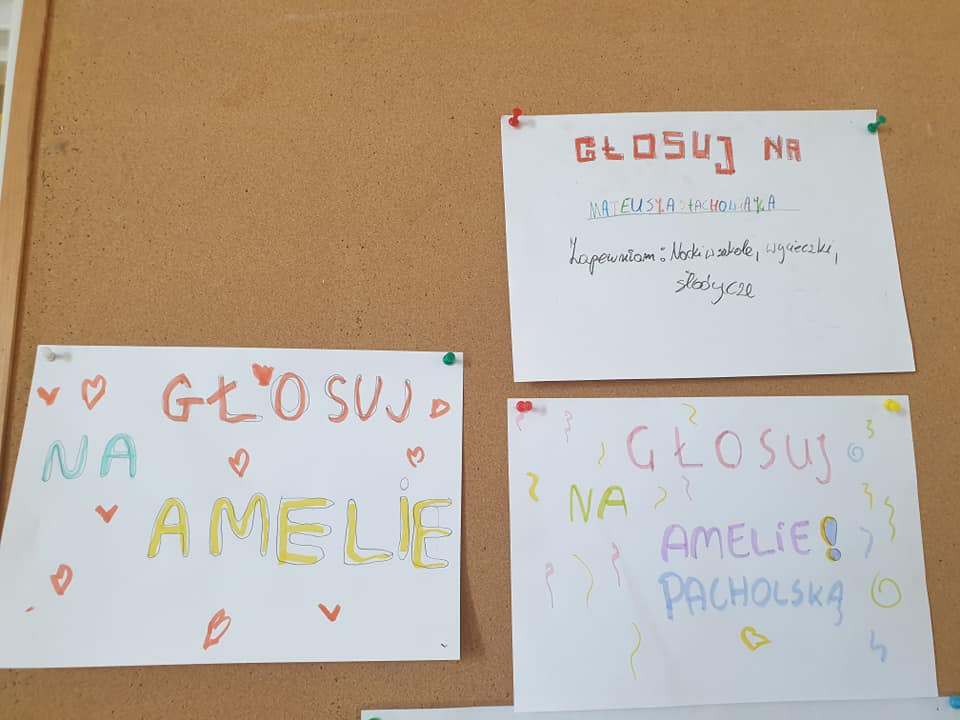 GŁOSUJ NA
MATEUSZA STACHOWIAKA
Zapewniam: Nocki w szkole, wycieczki,
słodycze
GŁOSUJ
NA
AMELIE
GŁOSUJ
NA
AMELIE!
PACHOLSKĄ